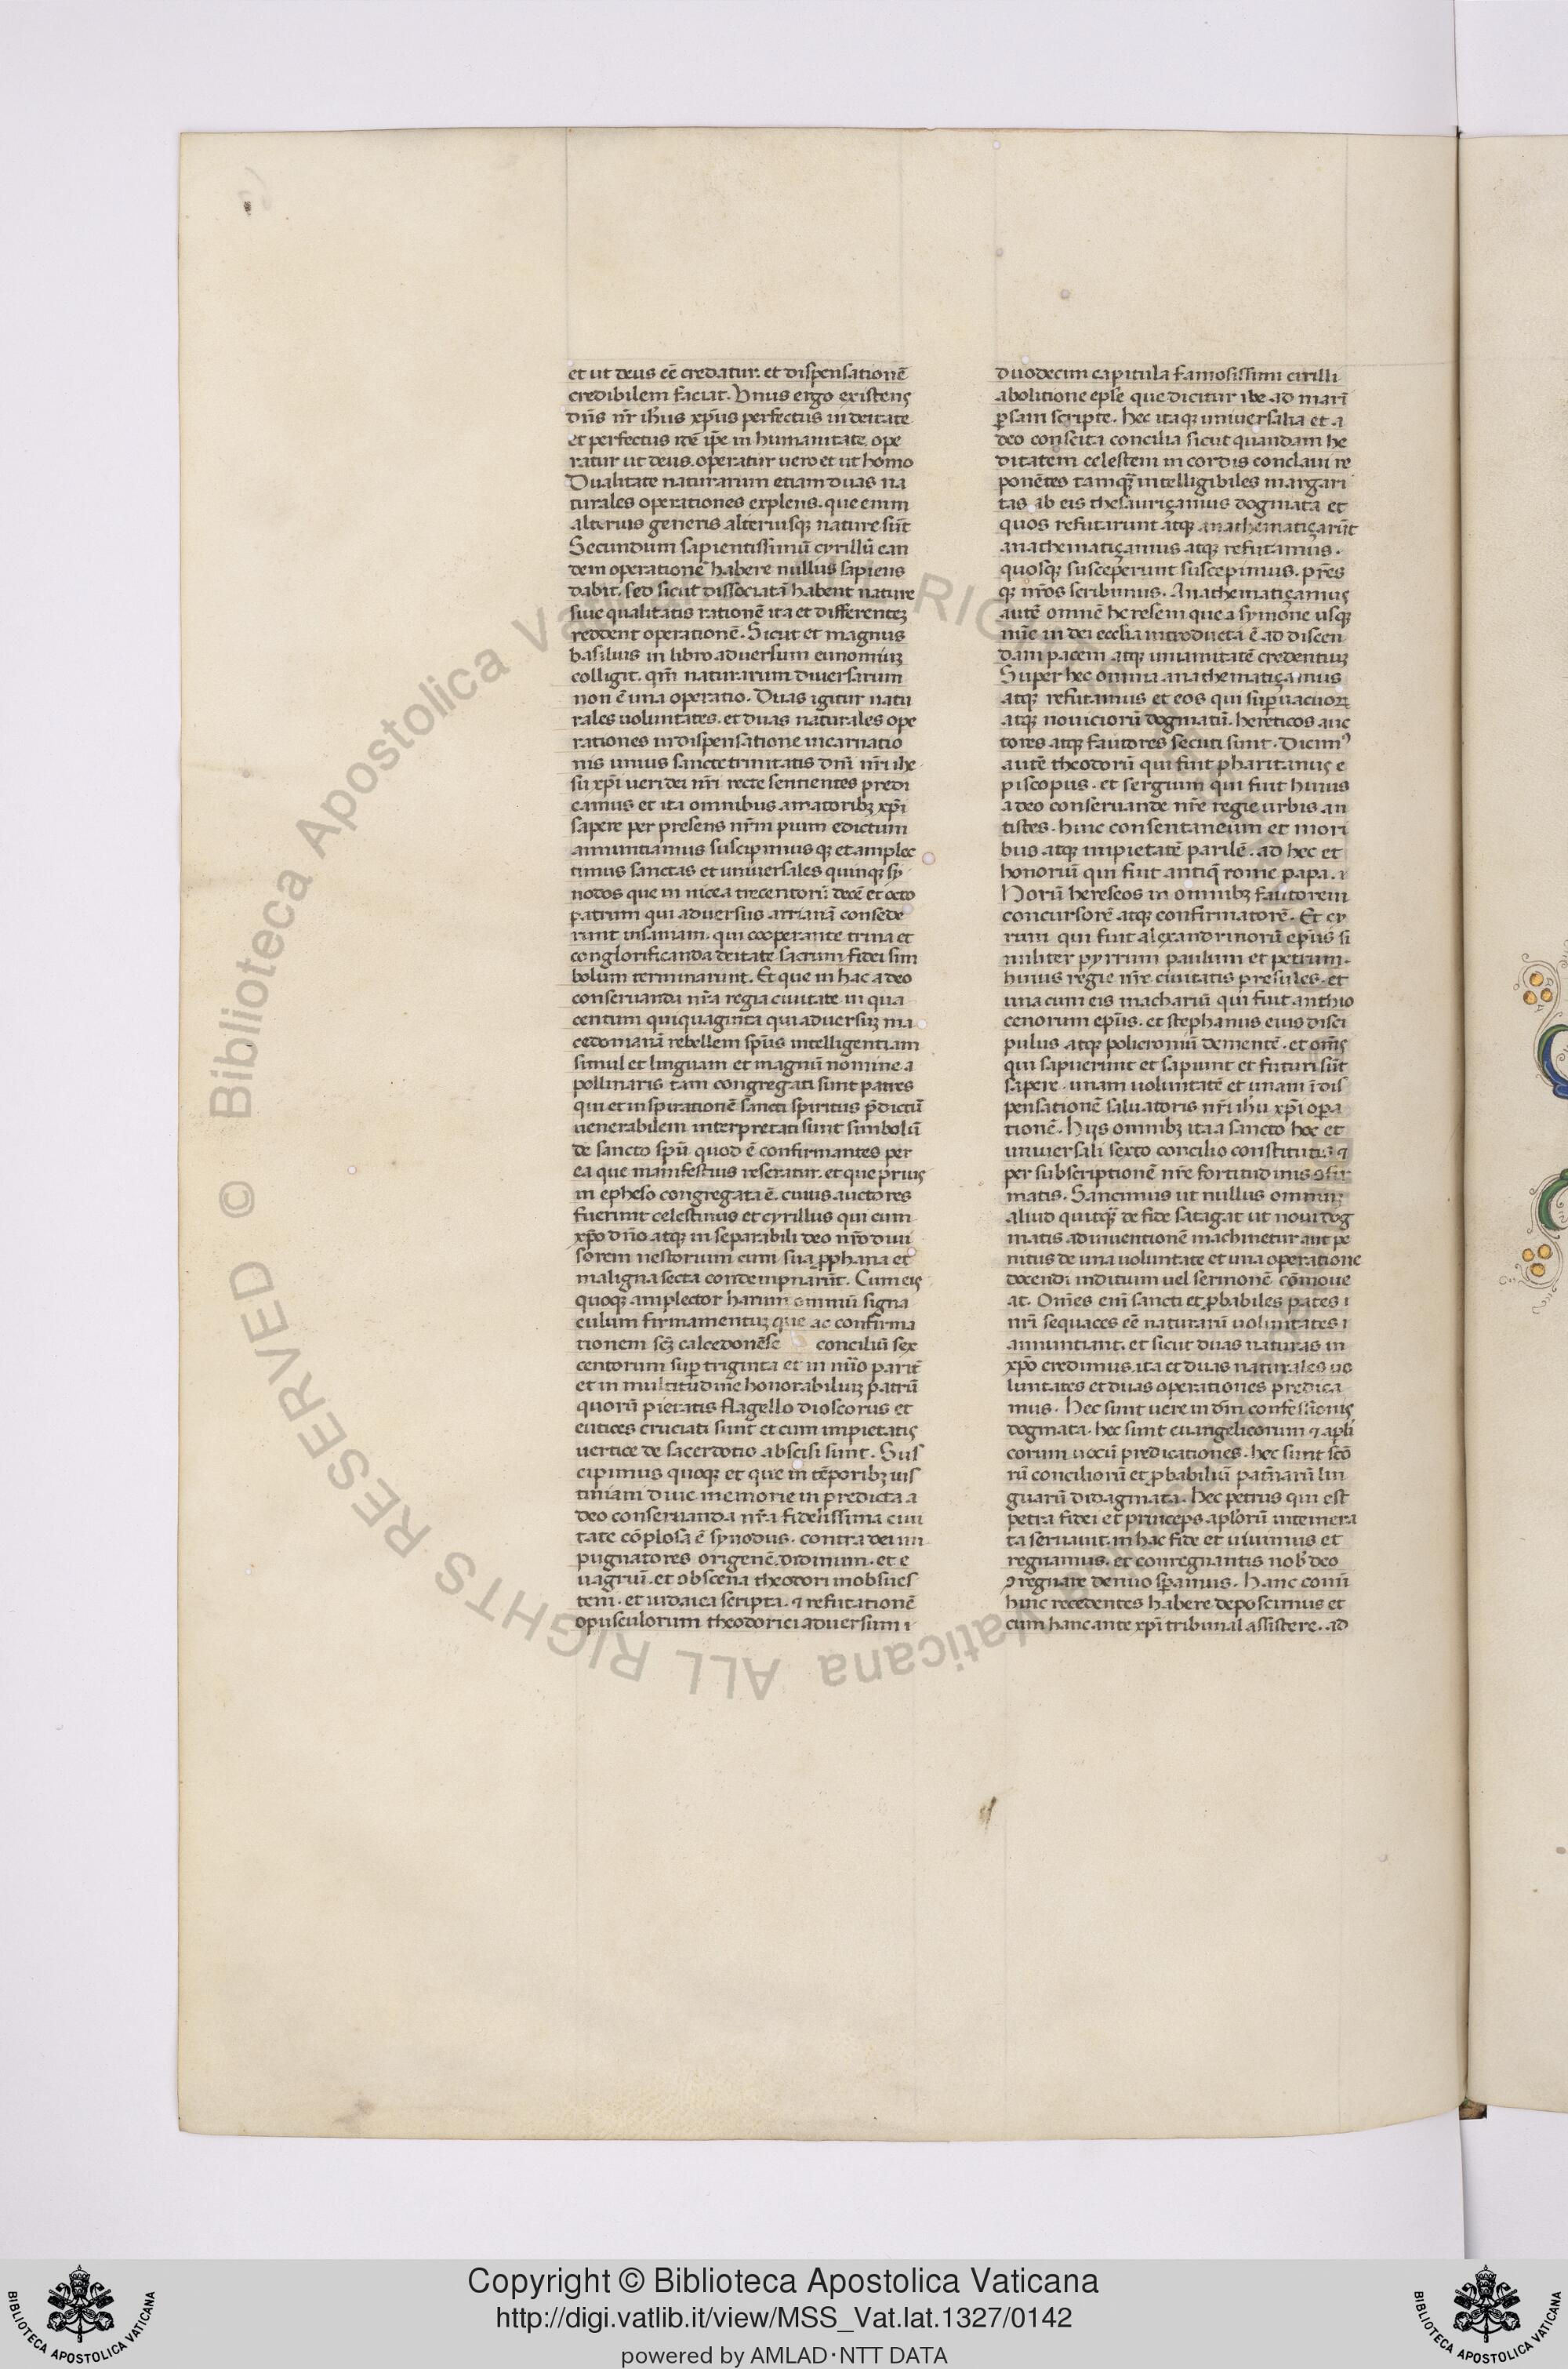 et ut deus eē credatur. et dispensationē
credibilem faciat. Vnus ergo existens
dn̄s nr̄ ihūs xp̄us perfectus in deitate
et perfectus idē ip̄e in humanitate. ope
ratur ut deus. operatur uero et ut homo
Dualitate naturarum etiam duas na
turales operationes explens. que enim
alterius generis alteriusqꝫ nature sūt
Secundum sapientissimū cyrillū ean
dem operationē habere nullus sapiens
dabit. sed sicut dissociatā habent nature
siue qualitatis rationē ita et differenteꝫ
reddent operationē. Sicut et magnus
basilius in libro aduersum eunomiuꝫ
colligit. qm̄ naturarum diuersarum
non ē una operatio. Duas igitur natu
rales uoluntates. et duas naturales ope
rationes in dispensatione incarnatio
nis unius sancte trinitatis dn̄i nr̄i ihe
su xp̄i ueri dei nr̄i recte sentientes predi
camus et ita omnibus amatoribꝫ xp̄i
sapere per presens nr̄m pium edictum
annuntiamus suscipimus qꝫ et amplec
timus sanctas et uniuersales quinqꝫ sy
nodos que in nicea trecentorū decē et octo
patrum qui aduersus arrianā consede
runt insaniam. qui cooperante trina et
conglorificanda deitate sacrum fidei sim
bolum terminarunt. Et que in hac a deo
conseruanda nr̄a regia ciuitate in qua
centum quiquaginta qui aduersuꝫ ma
cedonianā rebellem sp̄us intelligentiam
simul et linguam et magnū nomine a
pollinaris tam congregati sunt patres
qui et inspirationē sancti spiritus p̄dictū
uenerabilem interpretati sunt simbolū
de sancto spū quod ē confirmantes per
ea que manifestius reseratur. et que prius
in epheso congregata ē. cuius auctores
fuerunt celestinus et cyrillus qui cum
xp̄o dn̄o atqꝫ in separabili deo nr̄o diui
sorem nestorium cum sua ꝓphana et
maligna secta condempnarūt. Cum eis
quoqꝫ amplector harum omniū signa
culum firmamentuꝫ que ac confirma
tionem scꝫ calcedonēse conciliū sex
centorum sup̄ triginta et in nūo parit̄
et in multitudīe honorabiliuꝫ patrū
quorū pietatis flagello dioscorus et
eutices cruciati sunt et cum impietatis
uertice de sacerdotio abscisi sunt. Sus
cipimus quoqꝫ et que in tēporibꝫ ius
tiniani diue memorie in predicta a
deo conseruanda nr̄a fidelissima ciui
tate cōplosa ē synodus. contra dei im
pugnatores origenē. didimum. et e
uagriū. et obscena theodori mobsues
teni. et iudaica scripta. ⁊ refutationē
opusculorum theodorici aduersum i
duodecim capitula famosissimi cirilli
abolitione epl̄e que dicitur ibe ad marī
ꝑsam scripte. hec itaqꝫ uniuersalia et a
deo conscita concilia sicut quandam he
ditatem celestem in cordis conclaui re
ponētes tamqꝫ intelligibiles margari
tas ab eis thesauriçamus dogmata et
quos refutarunt atqꝫ anathematiçarūt
anathematiçamus atqꝫ refutamus.
quosqꝫ susceperunt suscepimus. pr̄es
qꝫ nr̄os scribimus. Anathematiçamus
autē omnē heresem que a symone usqꝫ
nūc in dei ecclīa introducta ē ad discen
dam pacem atqꝫ unanimitatē credentiuꝫ
Super hec omnia anathematiçamus
atqꝫ refutamus et eos qui sup̄uacuoꝝ
atqꝫ nouiciorū dogmatū. hereticos auc
tores atqꝫ fautores secuti sunt. Dicimꝰ
autē theodorū qui fuit pharitanus e
piscopus. et sergium qui fuit huius
a deo conseruande nr̄e regie urbis an
tistes. hinc consentaneum et mori
bus atqꝫ impietatē parilē. ad hec et
honoriū qui fuit antiq̄ rome papa. i
Horū hereseos in omnibꝫ fautorem
concursorē atqꝫ confirmatorē. Et cy
rum qui fuit alexandrinorū ep̄us si
militer pyrrum paulum et petrum.
huius regie nr̄e ciuitatis presules. et
una cum eis machariū qui fuit anthio
cenorum ep̄us. et stephanus eius disci
pulus atqꝫ policroniū dementē. et om̄s
qui sapuerunt et sapiunt et futuri sūt
sapere. unam uoluntatē et unam ī dis
pensationē saluatoris nr̄i ihū xp̄i opera
tionē. Hijs omnibꝫ ita a sancto hoc et
uniuersali sexto concilio constitutis ⁊
per subscriptionē nr̄e fortitudinis ꝯfir
matis. Sancimus ut nullus omniuꝫ
aliud quicqꝫ de fide satagat ut noui dog
matis adinuentionē machinetur aut pe
nitus de una uoluntate et una operatione
docendi inditium uel sermonē cōmoue
at. Om̄es enī sancti et ꝓbabiles pat̄es i
nr̄i sequaces eē naturarū uoluntates i
annuntiant. et sicut duas naturas in
xp̄o credimus. ita et duas naturales uo
luntates et duas operationes predica
mus. Hec sunt uere in dm̄ confessionis
dogmata. hec sunt euangelicorum ⁊ apl̄i
corum uocū predicationes. hec sunt scō
rū conciliorū et ꝓbabiliū pat̄narū lin
guarū didagmata. Hec petrus qui est
petra fidei et princeps apl̄orū intemera
ta seruauit. in hac fide et uiuimus et
regnamus. et conregnantis nob̄ deo
ꝯregnare denuo sꝑamus. Hanc coniū
hinc recedentes habere deposcimus et
cum hanc ante xp̄i tribunal assistere. ad
Copyright © Biblioteca Apostolica Vaticana
http://digi.vatlib.it/view/MSS_Vat.lat.1327/0142
powered by AMLAD·NTT DATA
BIBLIOTECA APOSTOLICA VATICANA
BIBLIOTECA APOSTOLICA VATICANA
© Biblioteca Apostolica Vaticana ALL RIGHTS RESERVED